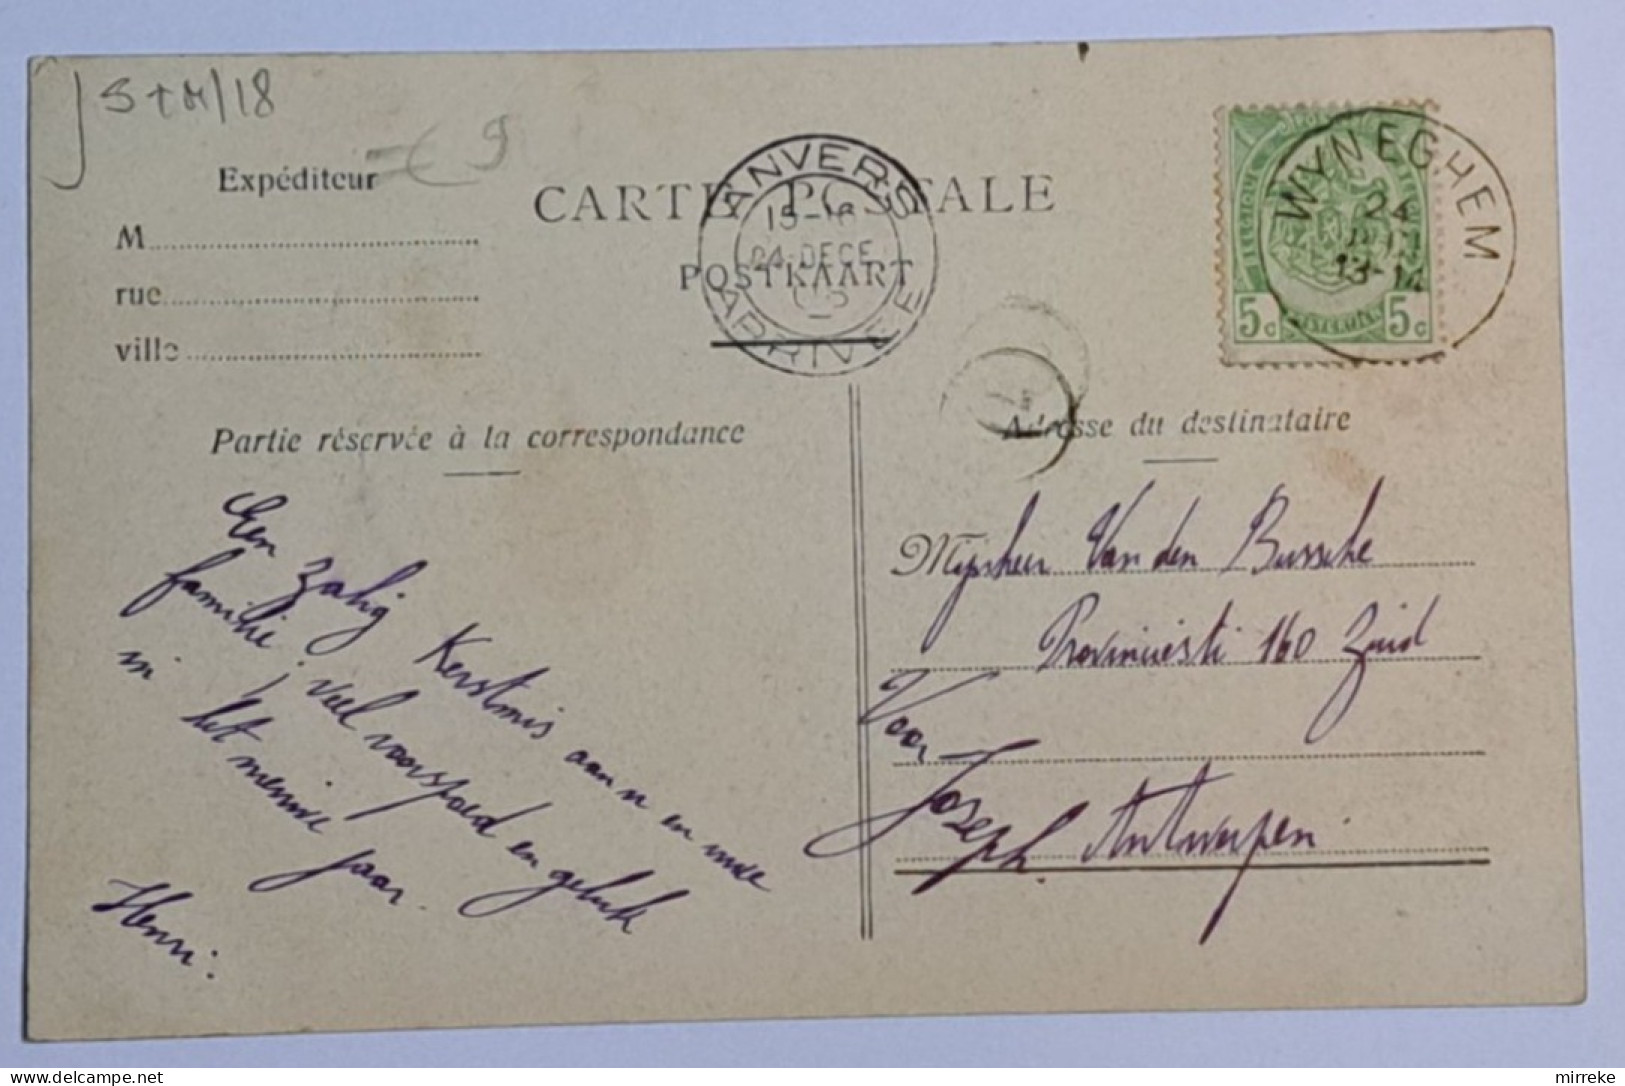 S + M/18
€ 9
Expéditeur
M
rue
ville
CARTE POSTALE
POSTKAART
ANVERS
15-16
24 DECE
ARRIVEE
WYNEGHEM
24
13-14
5c 5c
Partie réservée à la correspondance
Adresse du destinataire
Een zalig Kerstmis aan u en uwe
familie, veel voorspoed en geluk
in het nieuwe jaar.
Henri.
Mijnheer Van den Bussche
Provinciestr 160 Zuid
Voor
Joseph. Antwerpen.
mirreke